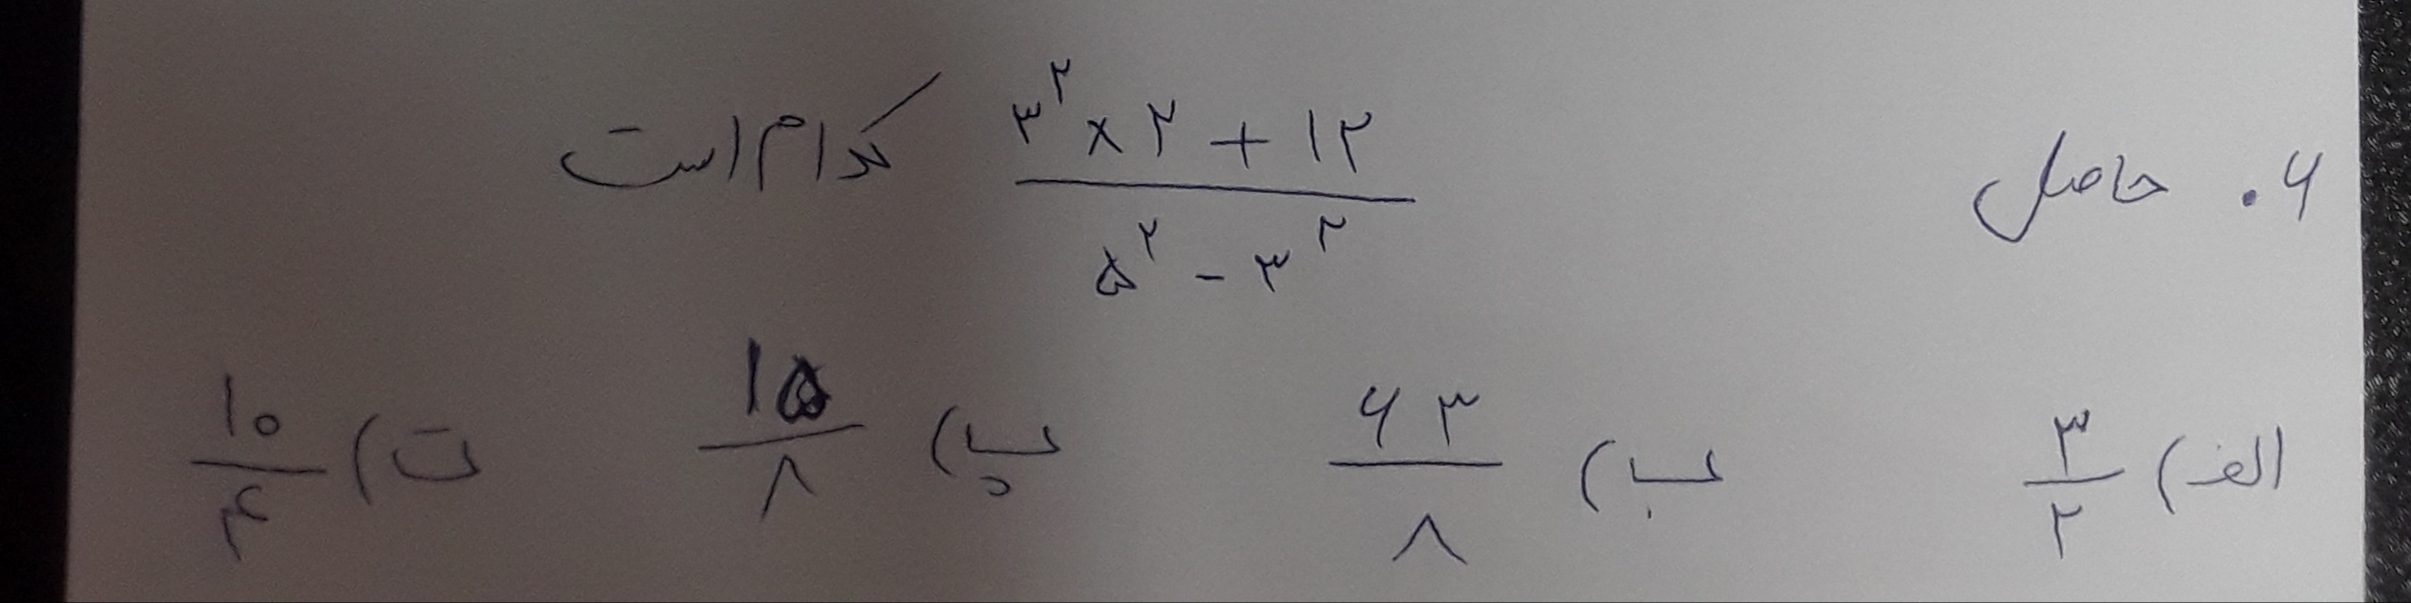 ۶. حاصل (۳^۲ × ۲ + ۱۲) / (۵^۲ - ۳^۲) کدام است
الف) ۳/۲ ب) ۶۳/۸ پ) ۱۵/۸ ت) ۱۰/۴